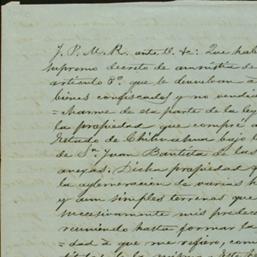 J. P. M. R. ante U. &c: Que hab
supremo decreto de amnistia de
articulo 8º. que le devuelvan a
bienes confiscados y no vendi
=charme de esta parte de la ley
la propiedad que compré a
Estado de Chihuahua bajo l
de Sn. Juan Bautista de las
anejas. Dicha propiedad
la aglomeracion de varias h
y aun simples terrenos que
sucesivamente mis predec
reuniendo hasta formar la
=dad a que me refiero, com